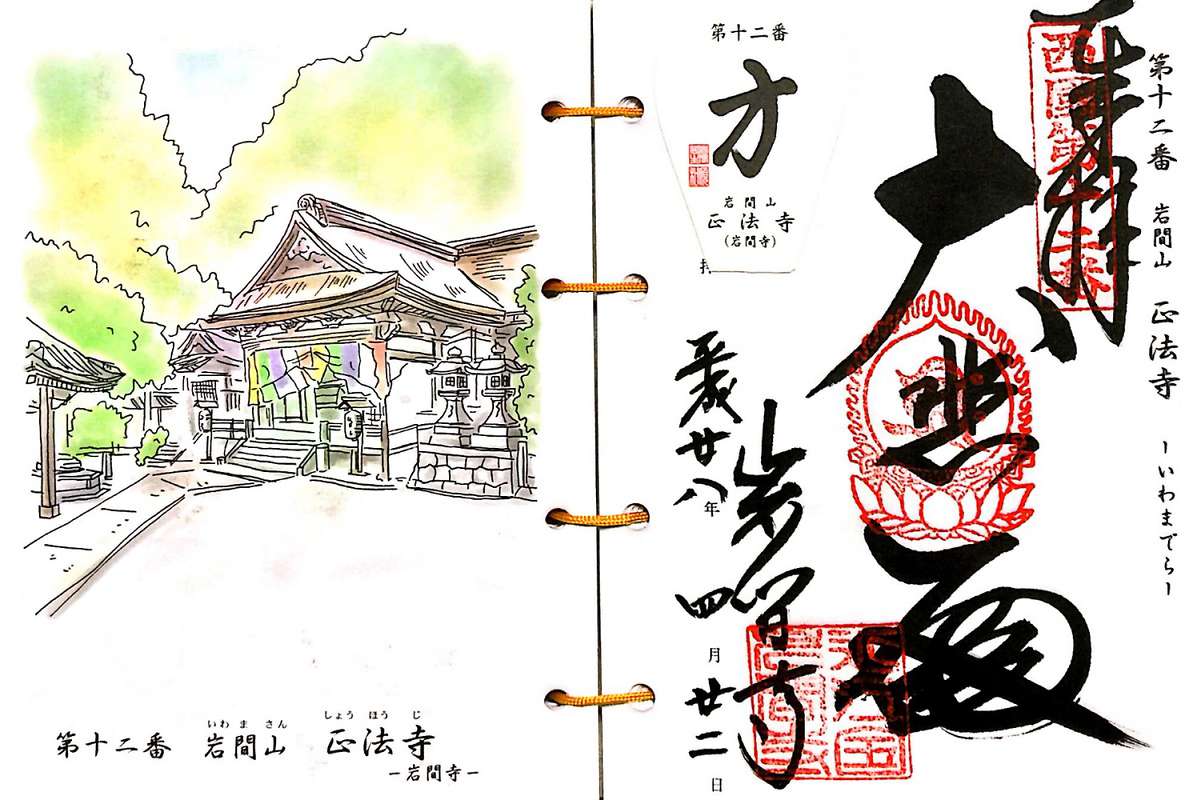 第十二番 岩間山 正法寺
いわ ま さん しょう ほう じ
－岩間寺－
第十二番
方
岩間山
正法寺
（岩間寺）
第十二番 岩間山 正法寺 ーいわまでらー
奉拝
西国第十二番
大悲殿
岩間寺
平成廿八年四月廿二日